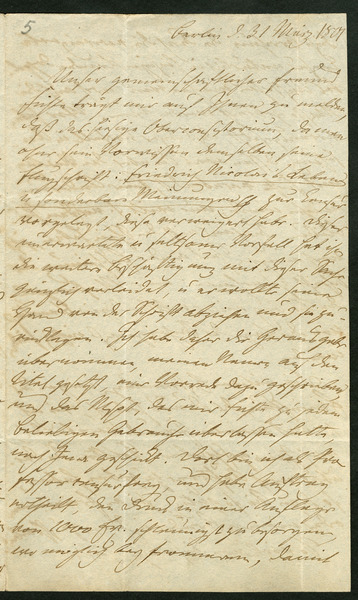 5
Berlin d. 31 März 1801
Unser gemeinschaftlicher Freund
Fichte trägt mir auf Ihnen zu melden,
daß das hiesige Oberconsistorium, da man
ohne sein Vorwissen demselben seine
Flugschrift: Friedrich Nicolai's Leben
u sonderbare Meinungen zur Censur
vorgelegt, diese verweigert habe. Dieser
unerwartete u seltsame Vorfall hat ihm
die weitere Beschäftigung mit dieser Sache
gänzlich verleidet, u er wollte seine
Hand von der Schrift abziehen und sie
Ich habe daher die Herausgabe
übernommen, meinen Namen auf den
Titel gesetzt, eine Vorrede dazu geschrieben
und das Mspt, das mir Fichte zu jedem
beliebigen Gebrauche überlassen hatte,
nach Jena geschickt. Dort
und habe Auftrag
ertheilt, den Druck in einer Auflage
von 1000 Ex. schleunigst zu besorgen,
wo möglich bey Frommann, damit